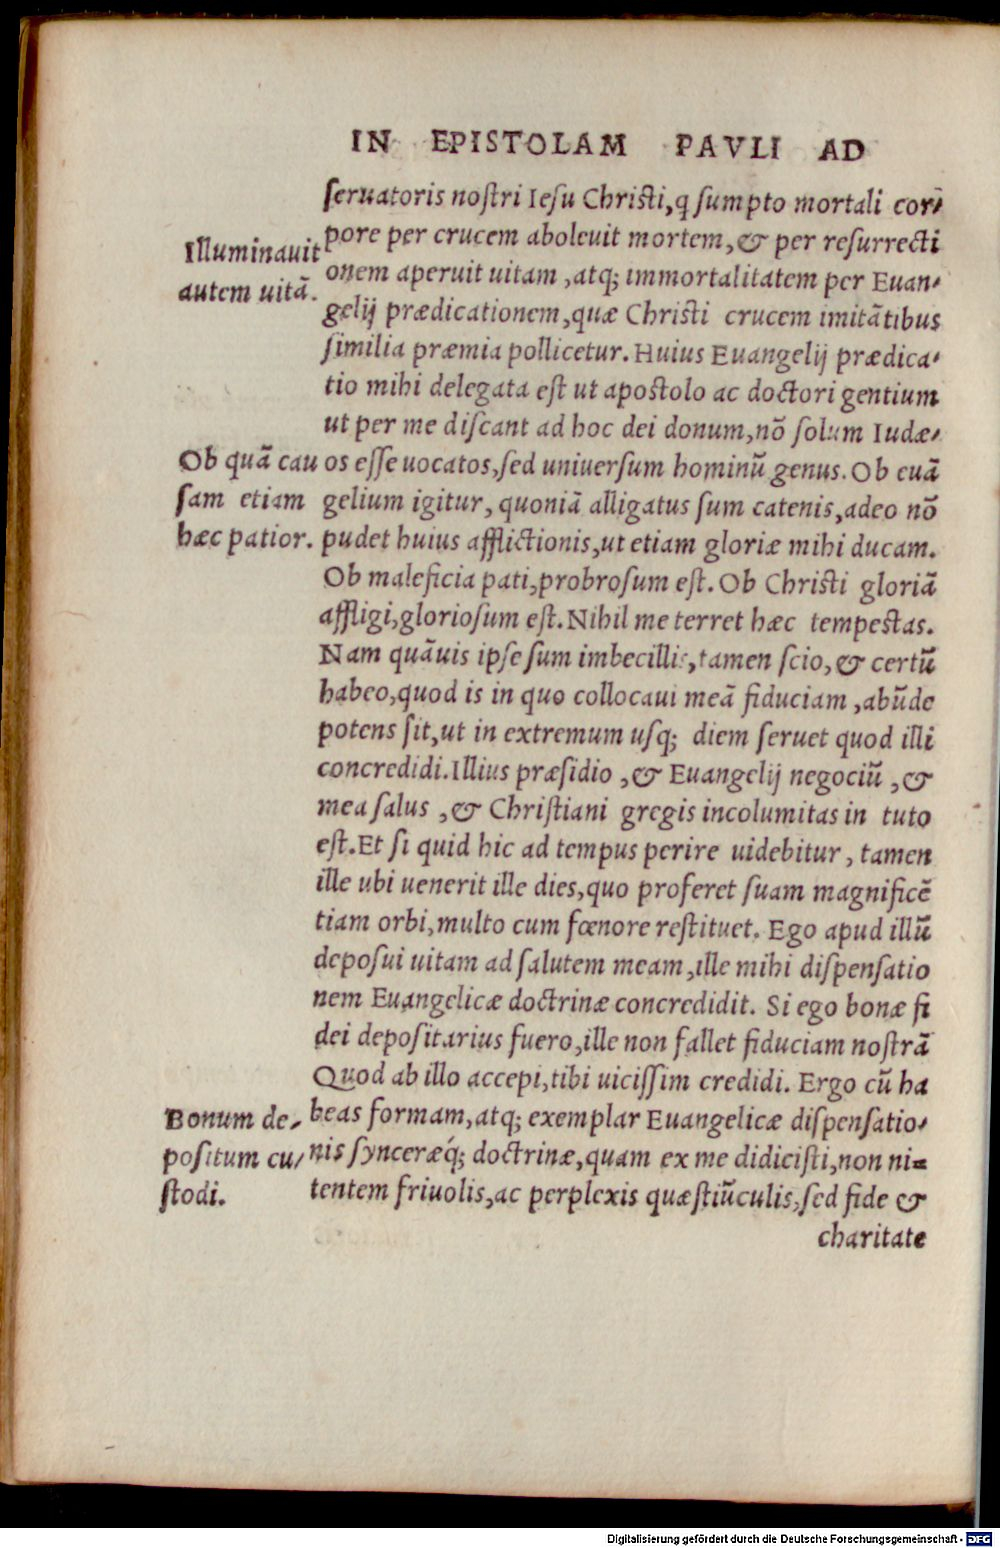 IN EPISTOLAM PAVLI AD
ſeruatoris noſtri Ieſu Chriſti, q̃ ſumpto mortali cor-
pore per crucem aboleuit mortem, & per reſurrecti
onem aperuit uitam, atq; immortalitatem per Euan-
gelij prædicationem, quæ Chriſti crucem imitãtibus
ſimilia præmia pollicetur. Huius Euangelij prædica-
tio mihi delegata eſt ut apoſtolo ac doctori gentium
ut per me diſcant ad hoc dei donum, nõ ſolum Iudæ-
os eſſe uocatos, ſed uniuerſum hominũ genus. Ob euã
gelium igitur, quoniã alligatus ſum catenis, adeo nõ
pudet huius afflictionis, ut etiam gloriæ mihi ducam.
Ob maleficia pati, probroſum eſt. Ob Chriſti gloriã
affligi, glorioſum eſt. Nihil me terret hæc tempeſtas.
Nam quãuis ipſe ſum imbecillis, tamen ſcio, & certũ
habeo, quod is in quo collocaui meã fiduciam, abũde
potens ſit, ut in extremum uſq; diem ſeruet quod illi
concredidi. Illius præſidio, & Euangelij negociũ, &
mea ſalus, & Chriſtiani gregis incolumitas in tuto
eſt. Et ſi quid hic ad tempus perire uidebitur, tamen
ille ubi uenerit ille dies, quo proferet ſuam magnificẽ
tiam orbi, multo cum fœnore reſtituet. Ego apud illũ
depoſui uitam ad ſalutem meam, ille mihi diſpenſatio
nem Euangelicæ doctrinæ concredidit. Si ego bonæ fi
dei depoſitarius fuero, ille non fallet fiduciam noſtrã
Quod ab illo accepi, tibi uiciſſim credidi. Ergo cũ ha
beas formam, atq; exemplar Euangelicæ diſpenſatio-
nis ſynceræq́; doctrinæ, quam ex me didiciſti, non ni-
tentem friuolis, ac perplexis quæſtiũculis, ſed fide &
charitate
Illuminauit
autem uitã.
Ob quã cau
ſam etiam
hæc patior.
Bonum de-
poſitum cu-
ſtodi.
Digitalisierung gefördert durch die Deutsche Forschungsgemeinschaft - DFG